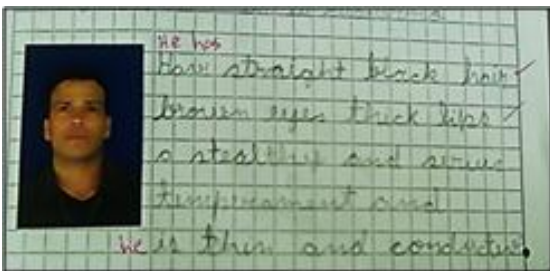 He has
have straight black hair
brown eyes thick lips
a stealthy and serius
temperament and
He is thin and